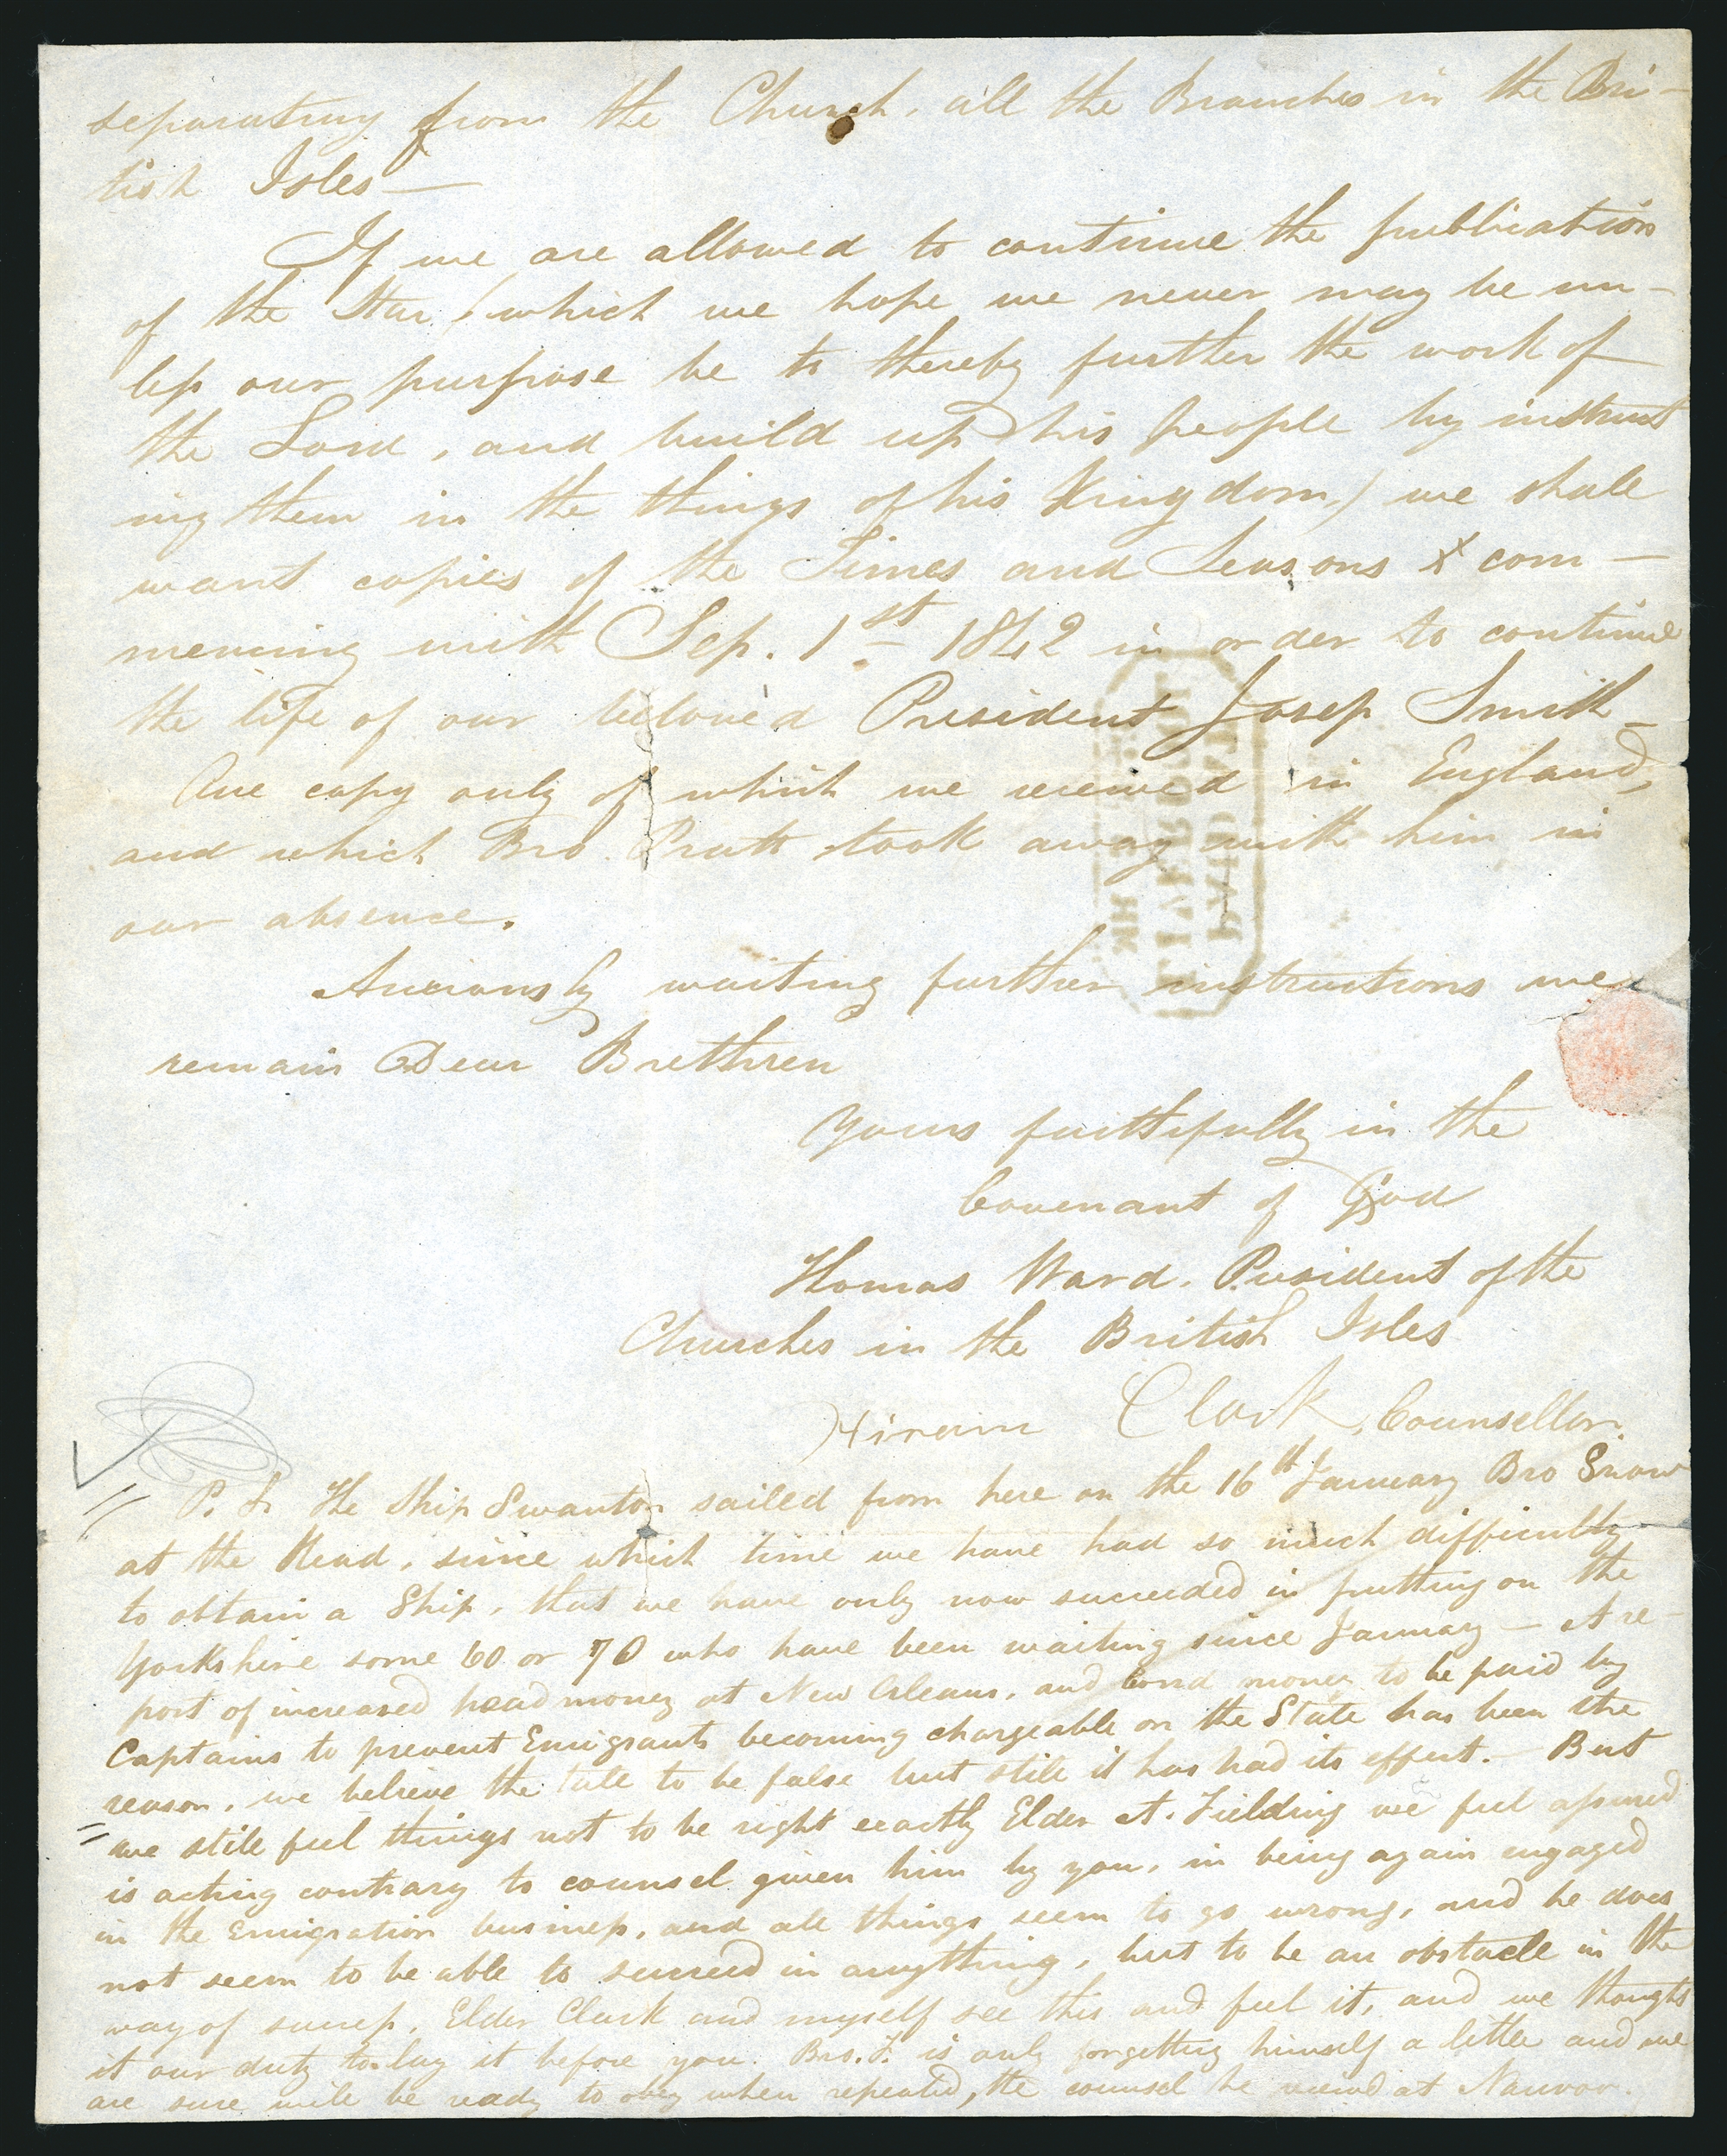 separating from the Church, all the Branches in the Bri-
tish Isles—
If we are allowed to continue the publication
of the Star (which we hope we never may be un-
less our purpose be to thereby further the work of
the Lord, and build up his people by instruct
ing them in the things of his Kingdom,) we shall
want copies of the Times and Seasons com-
mencing with Sep. 1st 1842 in order to continue
the life of our beloved President Josep Smith-
One copy only of which we received in England,
and which Bro. Pratt took away with him in
our absence.
Anxiously waiting further instructions we
remain Dear Brethren
Yours faithfully in the
Covenant of God
Thomas Ward. President of the
Churches in the British Isles
Hiram Clark, Counsellor.
P.S. The Ship Swanton sailed from here on the 16th January Bro Snow
at the Head, since which time we have had so much difficulty
to obtain a Ship, that we have only now succeeded in putting on the
Yorkshire some 60 or 70 who have been waiting since January — A re-
port of increased head money at New Orleans, and bond money to be paid by
Captains to prevent Emigrants becoming chargeable on the State has been the
reason, we believe the tale to be false but still it has had its effect. — But
we still feel things not to be right exactly Elder A. Fielding we feel assured
is acting contrary to counsel given him by you, in being again engaged
in the Emigration business, and all things seem to go wrong, and he does
not seem to be able to succeed in anything, but to be an obstacle in the
way of success, Elder Clark and myself see this and feel it, and we thought
it our duty to lay it before you. Bro. F. is only forgetting himself a little and we
are sure will be ready to obey when repeated, the counsel he received at Nauvoo.